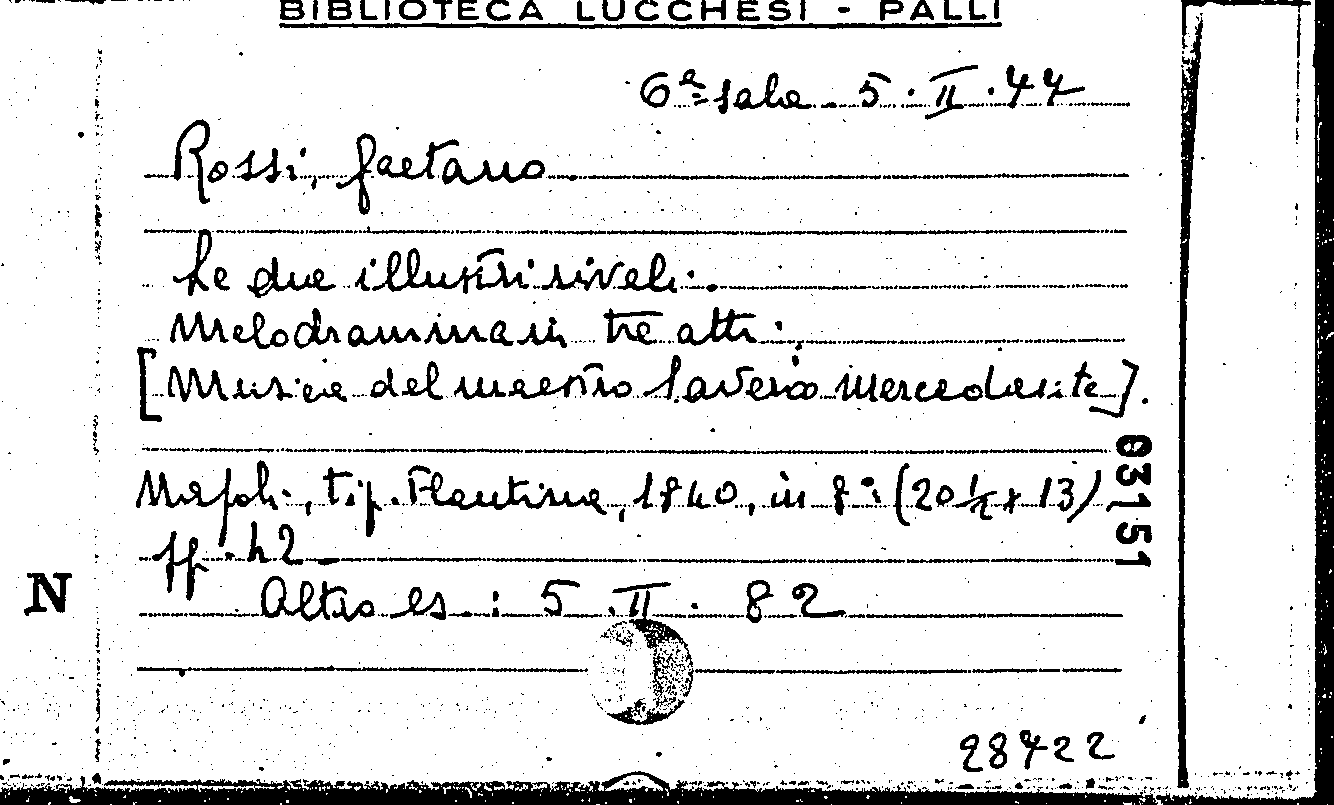 BIBLIOTECA LUCCHESI - PALLI
6ª sala. 5.II.44
Rossi, Gaetano.
Le due illustri rivali.
Melodramma in tre atti.
[Musica del maestro Saverio Mercadante].
Napoli, tip. Flautina, 1840, in 8º (20½ x 13)
pp. 42
Altro es.: 5.II.82
03151
N
28422